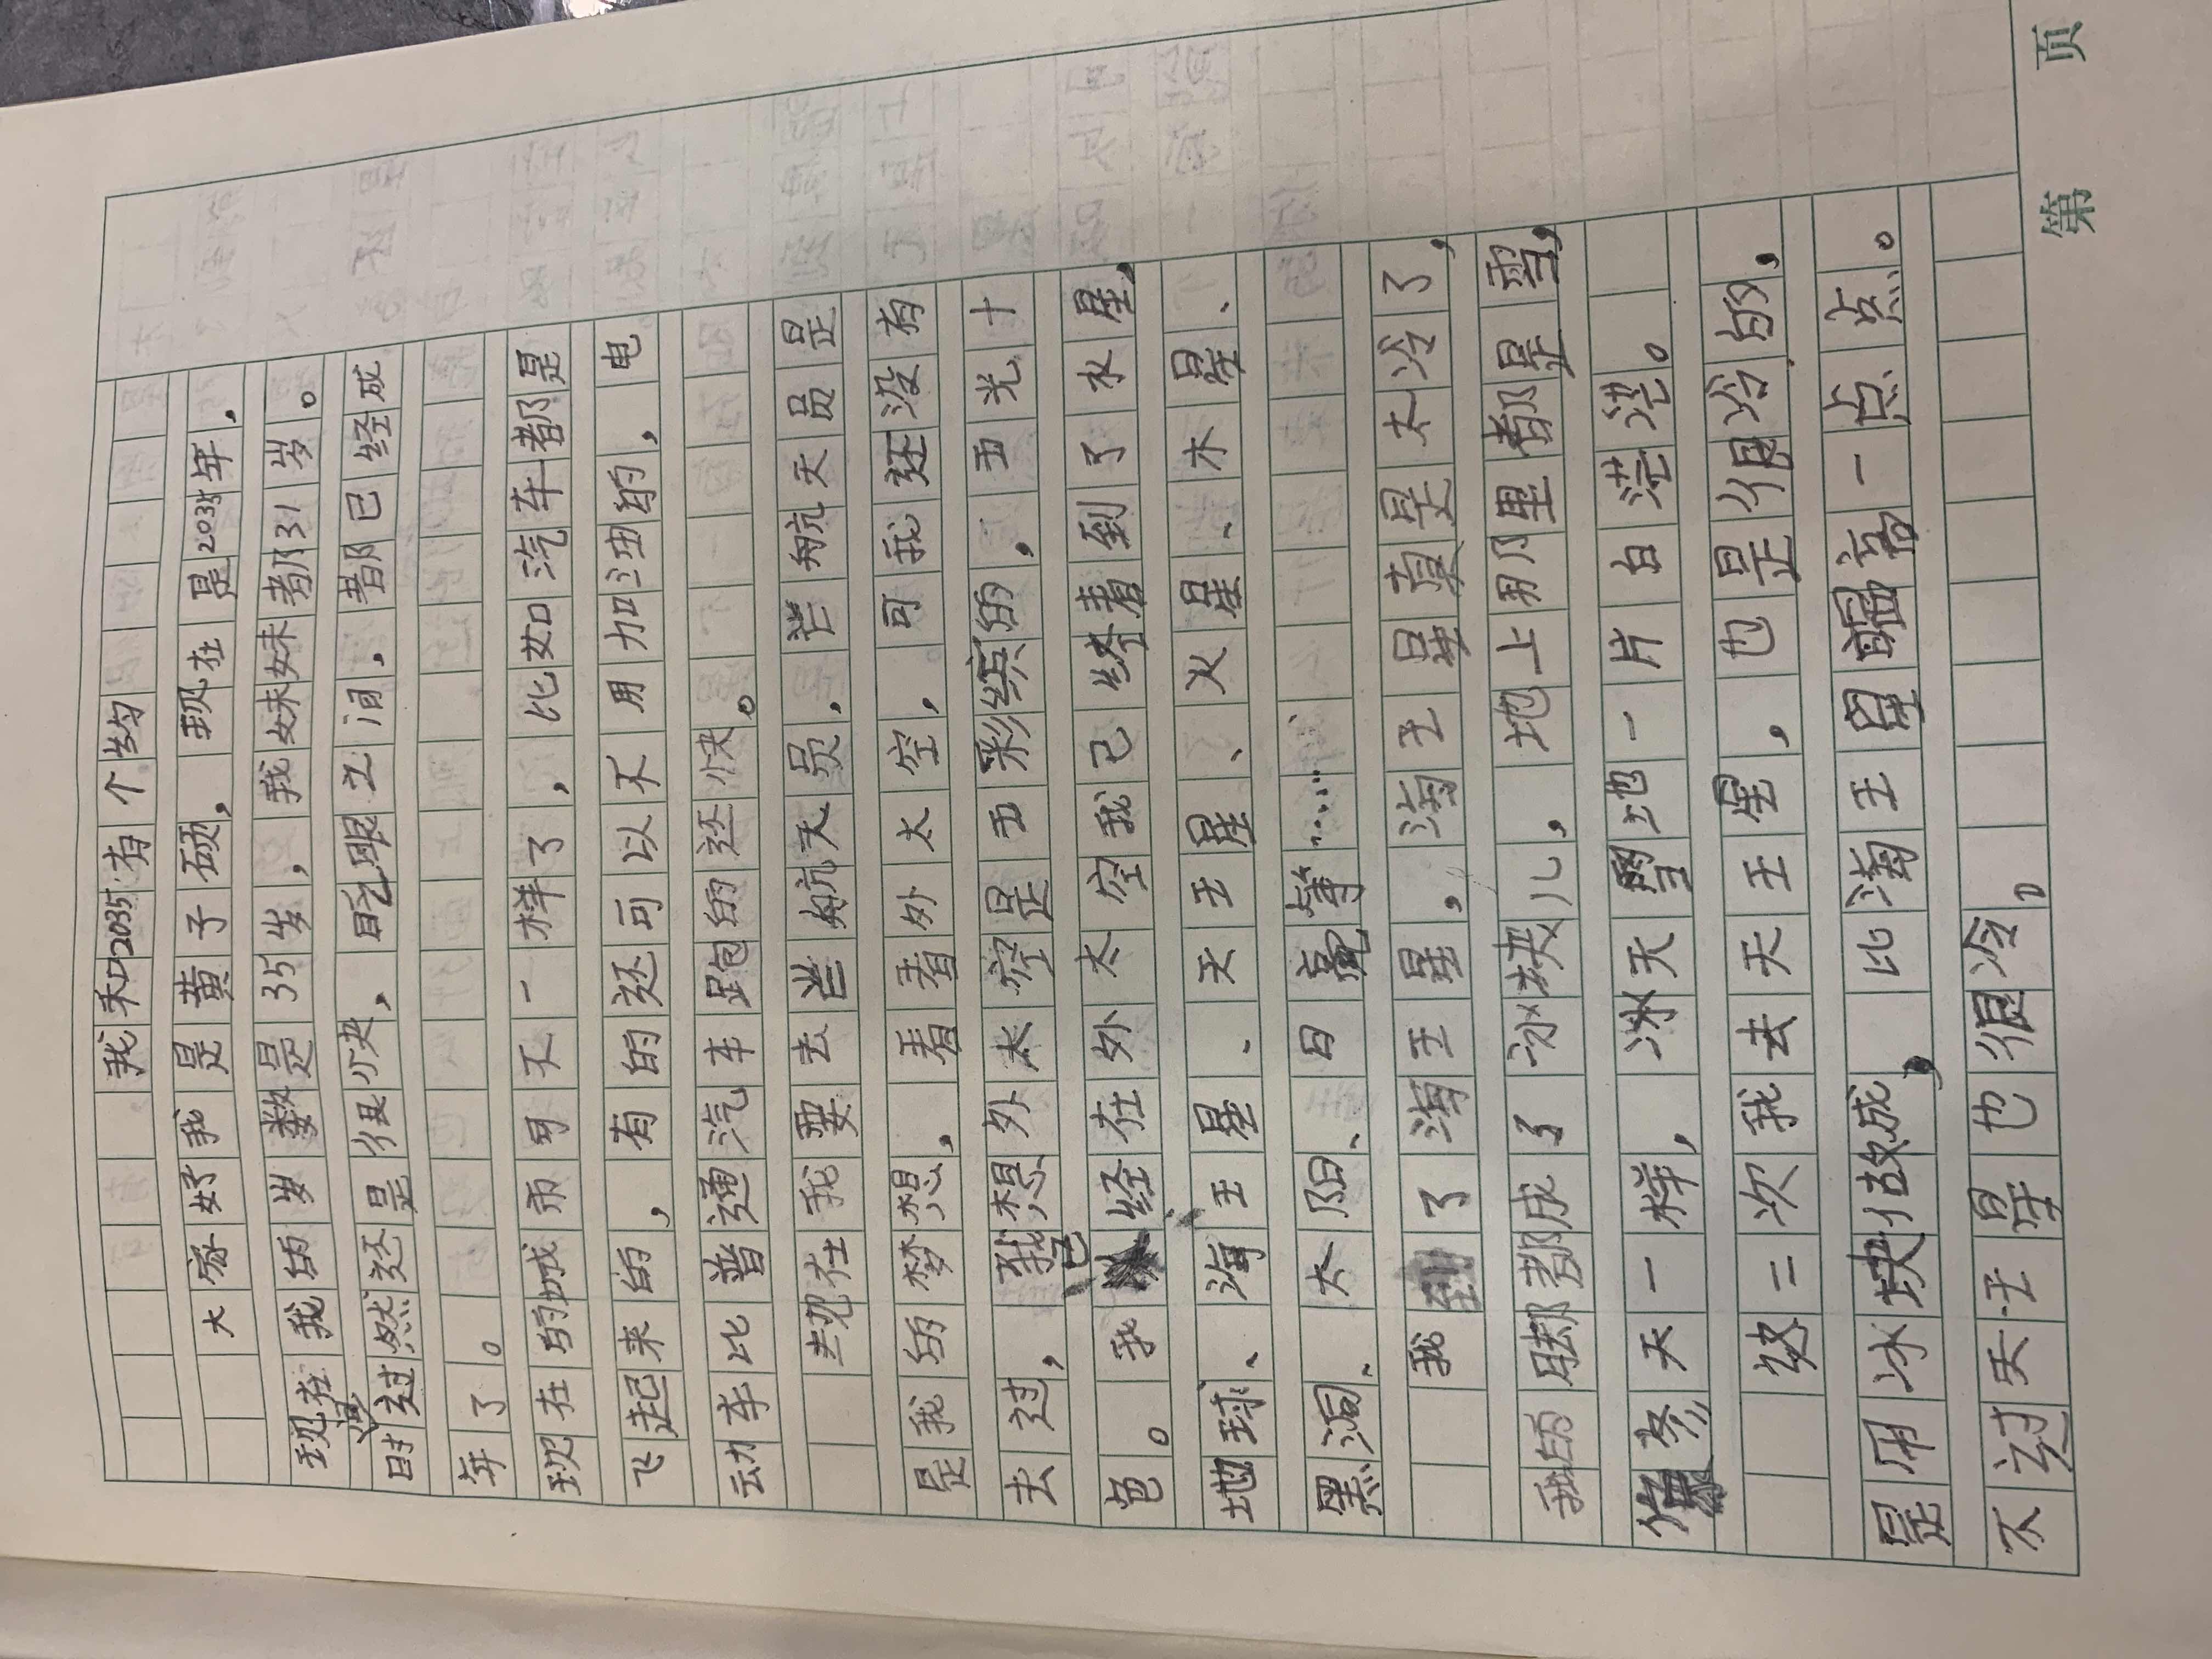 我和2035有个约
大家好我是黄子硕，现在是2035年，
现在我的岁数是35岁，我妹妹都31岁。
时过得然还是很快，眨眼之间，都已经成
年了。
现在的城市可不一样了，比如汽车都是
飞起来的，有的还可以不用加油的，电
动车比普通汽车跑的还快。
现在我要去当航天员，当航天员是
是我的梦想，看看外太空，可我还没有
去过，我想外太空是五彩缤纷的，五光十
色。我已经在外太空我已经看到了水星，
地球、海王星、天王星、火星、木星、
黑洞、太阳、月亮等……
我到了海王星，海王星真是太冷了，
我的腿都成了冰块儿，地上那里都是雪，
像冬天一样，冰天雪地一片白茫茫。
第二次我去天王星，也是很冷的，
是用冰块做成，比海王星暖亮一点点。
不过天王星也很冷。
第 页